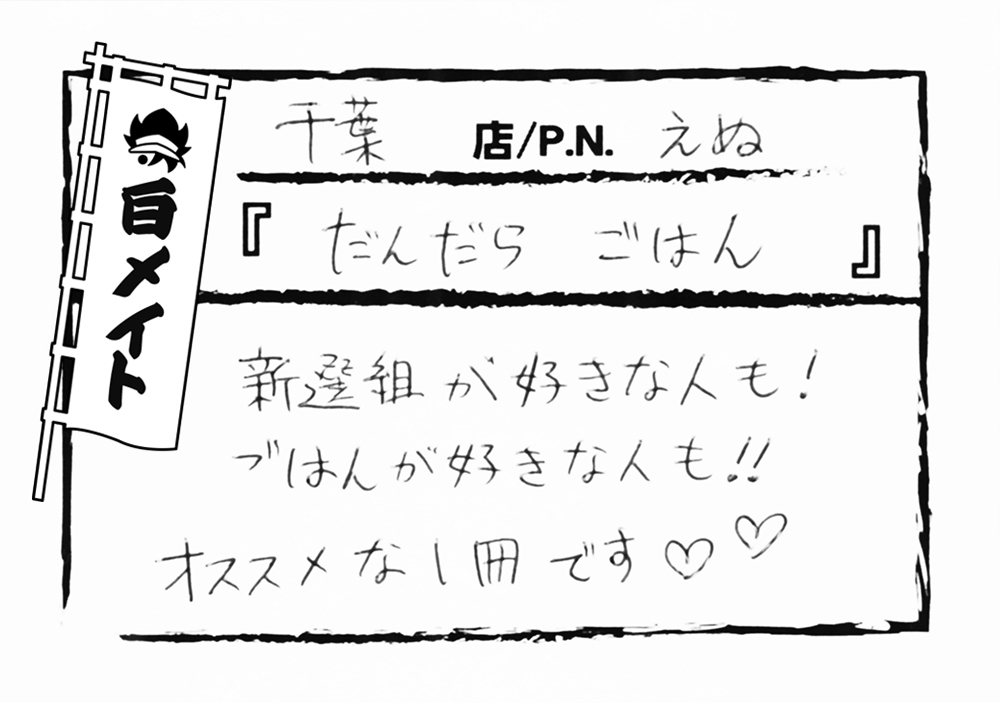 千葉 店/P.N. えぬ
『だんだら ごはん』
新選組が好きな人も!
ごはんが好きな人も!!
オススメな1冊です♡♡
盲メイト